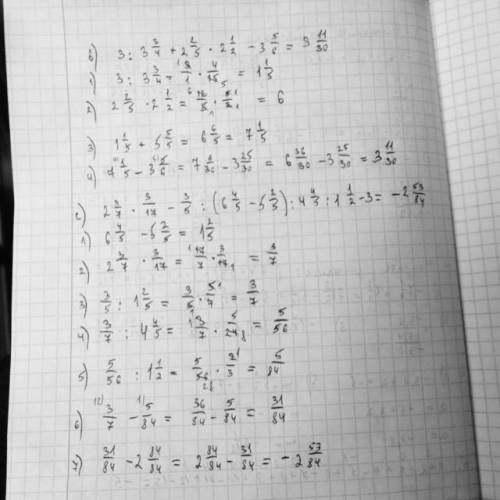 б) 3 : 3 3/4 + 2 2/5 · 2 1/2 − 3 5/6 = 3 11/30
1) 3 : 3 3/4 = 3/1 · 4/15 = 1 1/5
2) 2 2/5 · 2 1/2 = 12/5 · 5/2 = 6
3) 1 1/5 + 5 5/5 = 6 6/5 = 7 1/5
4) 7 1/5 − 3 5/6 = 7 6/30 − 3 25/30 = 6 36/30 − 3 25/30 = 3 11/30
2) 2 3/7 · 3/17 − 3/5 : (6 4/5 − 5 2/5) : 4 4/5 : 1 1/2 − 3 = −2 53/84
1) 6 4/5 − 5 2/5 = 1 2/5
2) 2 3/7 · 3/17 = 17/7 · 3/17 = 3/7
3) 3/5 : 1 2/5 = 3/5 · 5/7 = 3/7
4) 3/7 : 4 4/5 = 3/7 · 5/24 = 5/56
5) 5/56 : 1 1/2 = 5/56 · 2/3 = 5/84
6) 3/7 − 5/84 = 36/84 − 5/84 = 31/84
7) 31/84 − 2 84/84 = 2 84/84 − 31/84 = −2 53/84